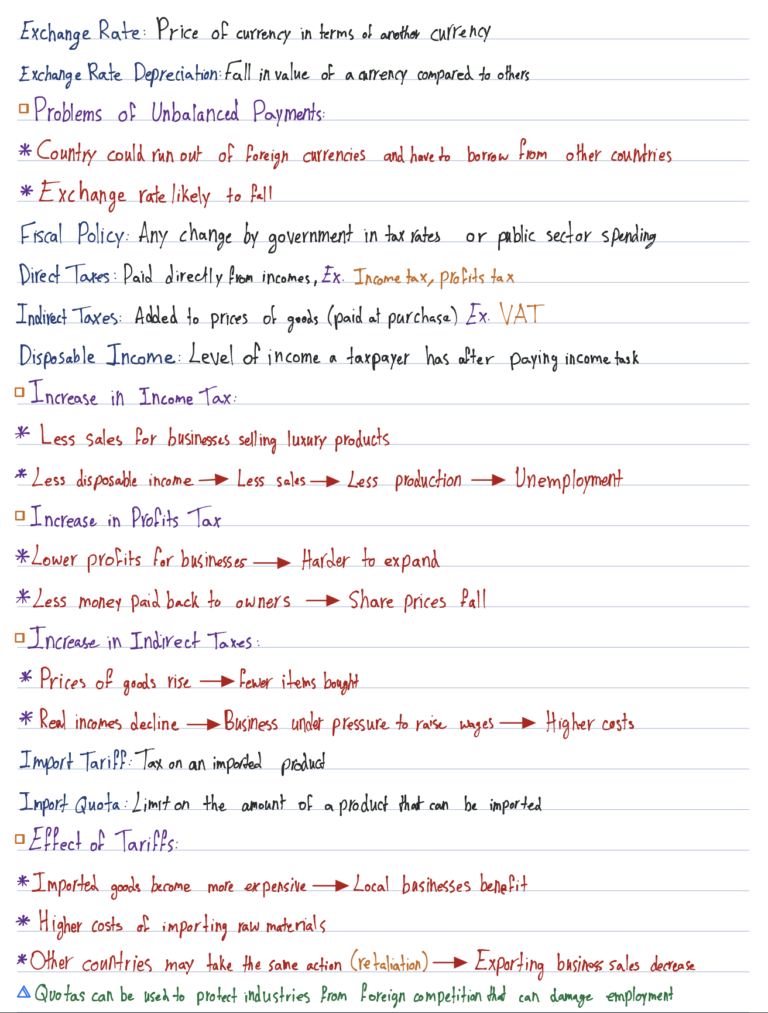 Exchange Rate: Price of currency in terms of another currency
Exchange Rate Depreciation: Fall in value of a currency compared to others
Problems of Unbalanced Payments:
* Country could run out of foreign currencies and have to borrow from other countries
* Exchange rate likely to fall
Fiscal Policy: Any change by government in tax rates or public sector spending
Direct Taxes: Paid directly from incomes, Ex. Income tax, profits tax
Indirect Taxes: Added to prices of goods (paid at purchase) Ex. VAT
Disposable Income: Level of income a taxpayer has after paying income task
Increase in Income Tax:
* Less sales for businesses selling luxury products
* Less disposable income → Less sales → Less production → Unemployment
Increase in Profits Tax
* Lower profits for businesses → Harder to expand
* Less money paid back to owners → Share prices fall
Increase in Indirect Taxes:
* Prices of goods rise → Fewer items bought
* Real incomes decline → Business under pressure to raise wages → Higher costs
Import Tariff: Tax on an imported product
Import Quota: Limit on the amount of a product that can be imported
Effect of Tariffs:
* Imported goods become more expensive → Local businesses benefit
* Higher costs of importing raw materials
* Other countries may take the same action (retaliation) → Exporting business sales decrease
Quotas can be used to protect industries from foreign competition that can damage employment